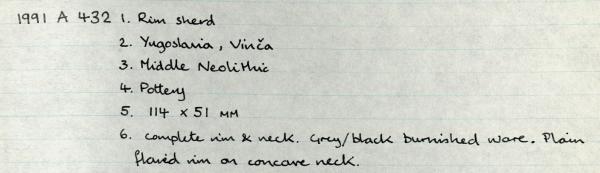 1991 A 432 1. Rim sherd
2. Yugoslavia, Vinča
3. Middle Neolithic
4. Pottery
5. 114 x 51 MM
6. complete rim & neck. Grey/black burnished ware. Plain
flared rim on concave neck.